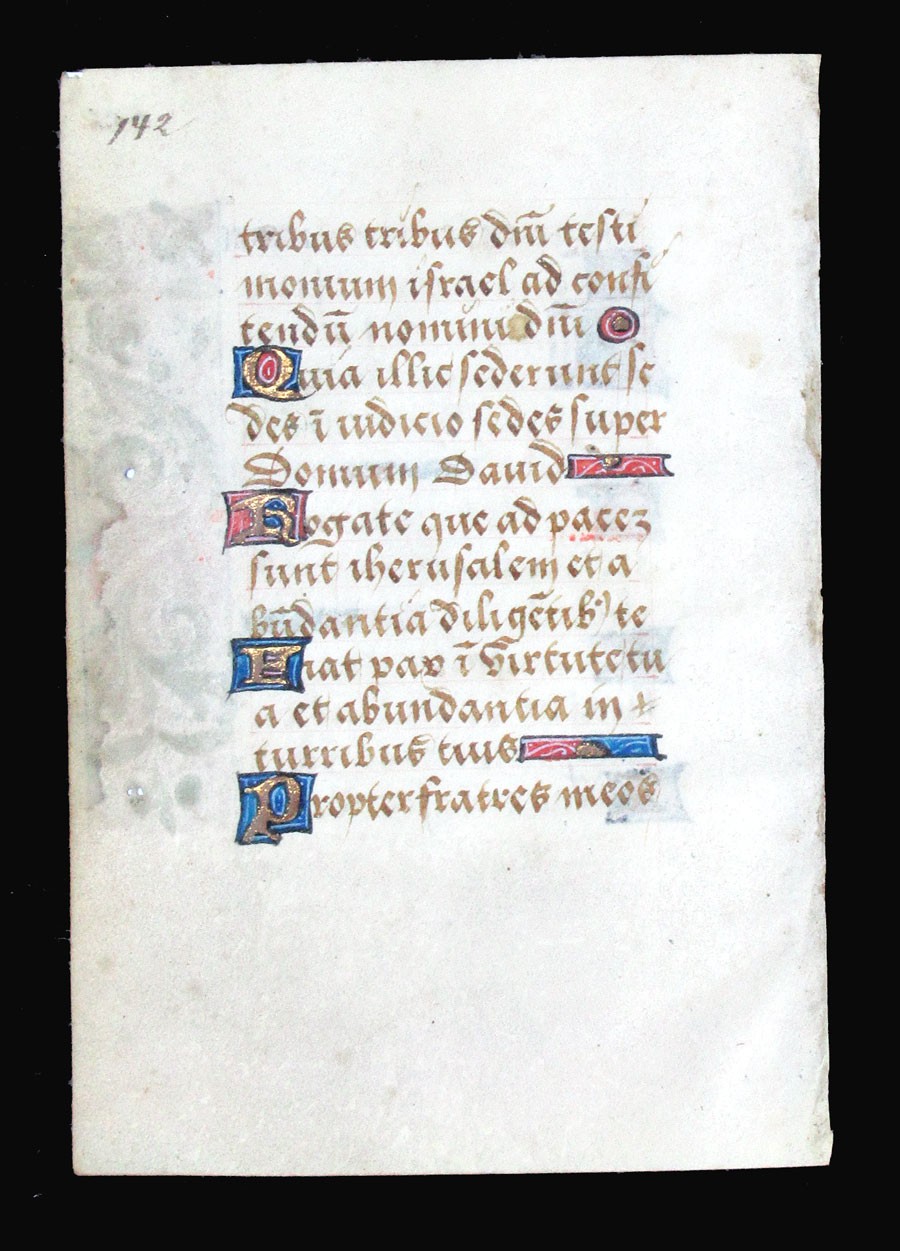 142
tribus tribus dn̄i testi
monium israel ad confi
tendū nomini dn̄i
Quia illic sederunt se
des ī iudicio sedes super
Domum Dauid
Rogate que ad pacez
sunt iherusalem et a
būdantia diligētibꝰ te
Fiat pax ī virtute tu
a et abundantia in
turribus tuis
Propter fratres meos